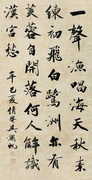 一聲漁唱海天秋素
練初飛白鷺洲亦有
芙蓉自開落何人解識
漢宮愁 辛巳夏